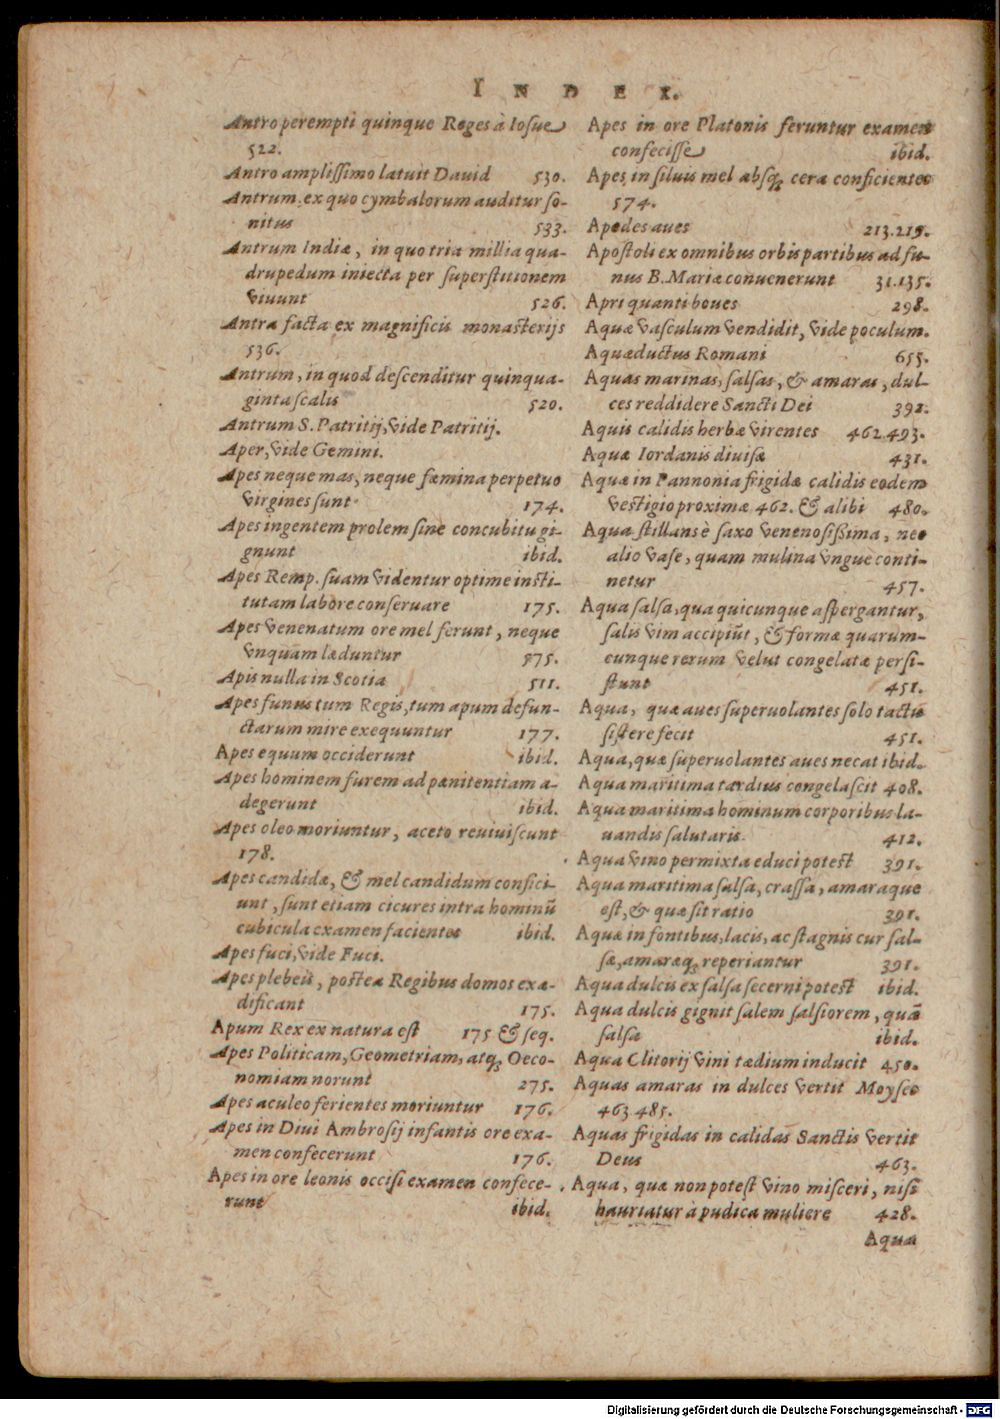 INDEX.
Antro perempti quinque Reges à Iosue
522.
Antro amplissimo latuit Dauid 530.
Antrum ex quo cymbalorum auditur so-
nitus 533.
Antrum Indiæ, in quo tria millia qua-
drupedum iniecta per superstitionem
viuunt 526.
Antra facta ex magnificis monasterijs
536.
Antrum, in quod descenditur quinqua-
ginta scalis 520.
Antrum S. Patritij, vide Patritij.
Aper, vide Gemini.
Apes neque mas, neque fœmina perpetuo
virgines sunt 174.
Apes ingentem prolem sine concubitu gi-
gnunt ibid.
Apes Remp. suam videntur optime insti-
tutam labore conseruare 175.
Apes venenatum ore mel ferunt, neque
vnquam læduntur 175.
Apis nulla in Scotia 511.
Apes funus tum Regis, tum apum defun-
ctarum mire exequuntur 177.
Apes equum occiderunt ibid.
Apes hominem furem ad pœnitentiam a-
degerunt ibid.
Apes oleo moriuntur, aceto reuiuiscunt
178.
Apes candidæ, & mel candidum confici-
unt, sunt etiam cicures intra hominũ
cubicula examen facientes ibid.
Apes fuci, vide Fuci.
Apes plebeis, postea Regibus domos exæ-
dificant 175.
Apum Rex ex natura est 175 & seq.
Apes Politicam, Geometriam, atq; Oeco-
nomiam norunt 275.
Apes aculeo ferientes moriuntur 176.
Apes in Diui Ambrosij infantis ore exa-
men confecerunt 176.
Apes in ore leonis occisi examen confece-
runt ibid.
Apes in ore Platonis feruntur examen
confecisse ibid.
Apes in siluis mel absq; cera conficientes
574.
Apedes aues 213.215.
Apostoli ex omnibus orbis partibus ad fu-
nus B. Mariæ conuenerunt 31.135.
Apri quanti boues 298.
Aquæ vasculum vendidit, vide poculum.
Aquæductus Romani 655.
Aquas marinas, salsas, & amaras, dul-
ces reddidere Sancti Dei 392.
Aquis calidis herbæ virentes 462.493.
Aquæ Iordanis diuisæ 431.
Aquæ in Pannonia frigidæ calidis eodem
vestigio proximæ 462. & alibi 480.
Aqua stillans è saxo venenosißima, nec
alio vase, quam mulina vngue conti-
netur 457.
Aqua salsa, qua quicunque aspergantur,
salis vim accipiũt, & formæ quarum-
cunque rerum velut congelatæ persi-
stunt 451.
Aqua, quæ aues superuolantes solo tactu
sistere fecit 451.
Aqua, quæ superuolantes aues necat ibid.
Aqua maritima tardius congelascit 408.
Aqua maritima hominum corporibus la-
uandis salutaris 412.
Aqua vino permixta educi potest 391.
Aqua maritima salsa, crassa, amaraque
est, & quæ sit ratio 391.
Aquæ in fontibus, lacis, ac stagnis cur sal-
sæ, amaræq; reperiantur 391.
Aqua dulcis ex salsa secerni potest ibid.
Aqua dulcis gignit salem salsiorem, quã
salsa ibid.
Aqua Clitorij vini tædium inducit 450.
Aquas amaras in dulces vertit Moyses
463 485.
Aquas frigidas in calidas Sanctis vertit
Deus 463.
Aqua, quæ non potest vino misceri, nisi
hauriatur à pudica muliere 428.
Aqua
Digitalisierung gefördert durch die Deutsche Forschungsgemeinschaft - DFG